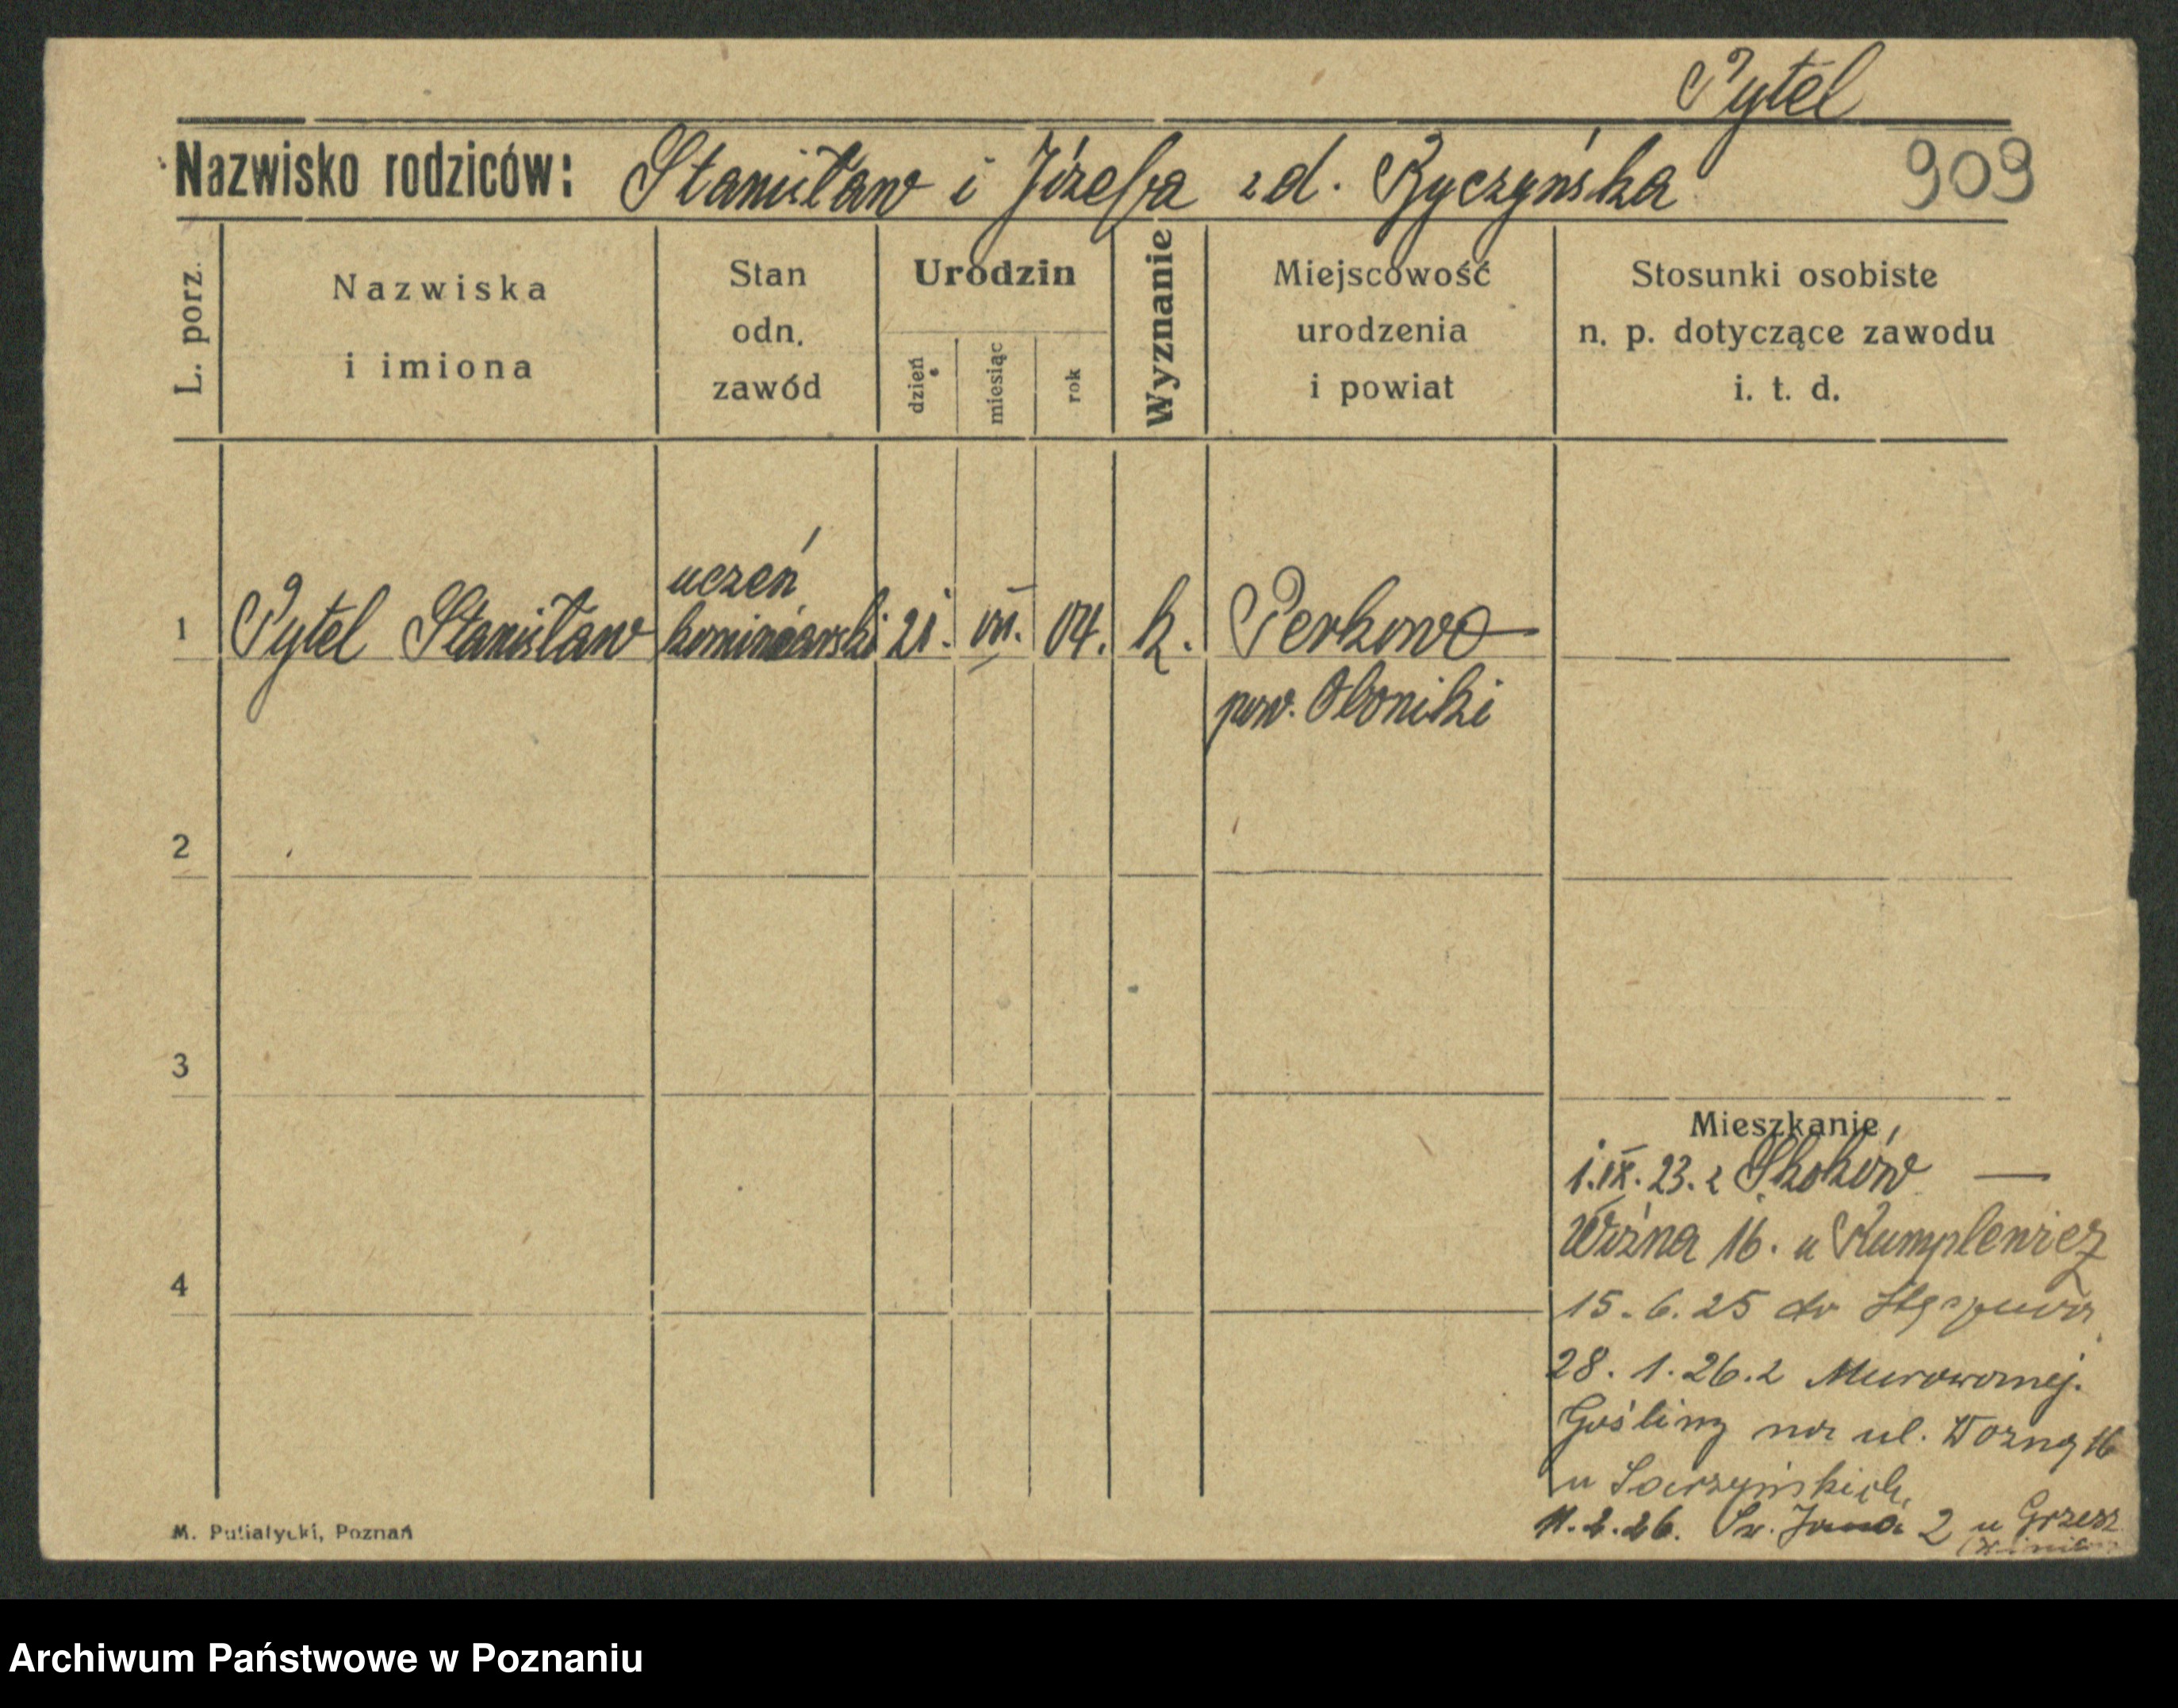 Pytel
Nazwisko rodziców: Stanisław i Józefa z d. Ryczyńska 909
L. porz.
Nazwiska
i imiona
Stan
odn.
zawód
Urodzin
dzień
miesiąc
rok
Wyznanie
Miejscowość
urodzenia
i powiat
Stosunki osobiste
n. p. dotyczące zawodu
i. t. d.
1 Pytel Stanisław uczeń kominiarski 21. VII. 04. k. Perkowo
pow. Oborniki
2
3
4
Mieszkanie
1.IX.23. z Skoków —
Woźna 16. u Rumplewicz
15.6.25 do
28.1.26. z Murowanej.
Gośliny na ul. Wozną 16
u
11.2.26. Św. Jana 2 u Grzesz
M. Putiatycki, Poznań
Archiwum Państwowe w Poznaniu